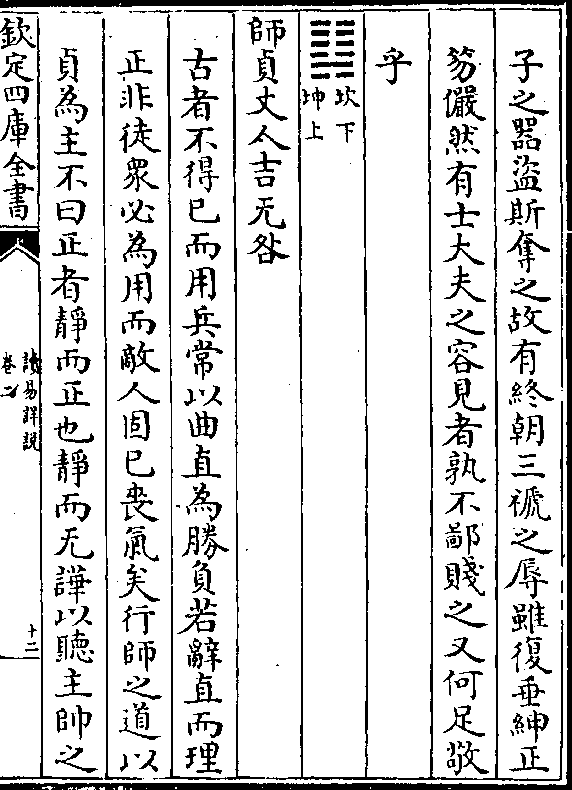 子之器盜斯奪之故有終朝三褫之辱雖復垂紳正
笏儼然有士大夫之容見者孰不鄙賤之又何足敬
乎
䷆坎下
坤上
師貞丈人吉无咎
古者不得已而用兵常以曲直為勝負若辭直而理
正非徒眾必為用而敵人固已喪氣矣行師之道以
貞為主不曰正者靜而正也靜而无譁以聽主帥之
欽定四庫全書
讀易詳說
卷二
十二